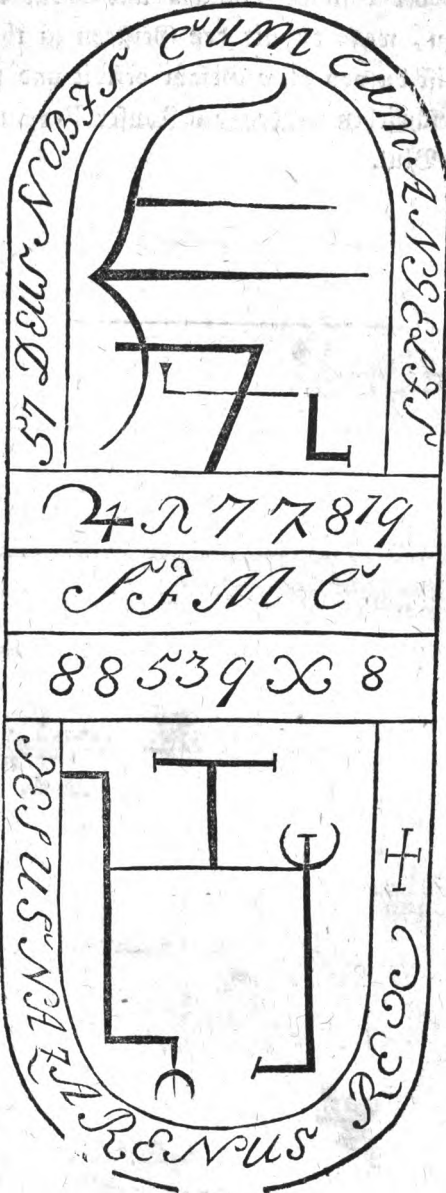 57 DEUS NOBIS CUM CUM ANGELIS
♃ R 7 7 819
S I M C
8 8 5 3 9 X 8
JESUS NAZARENUS
✝ DOREM